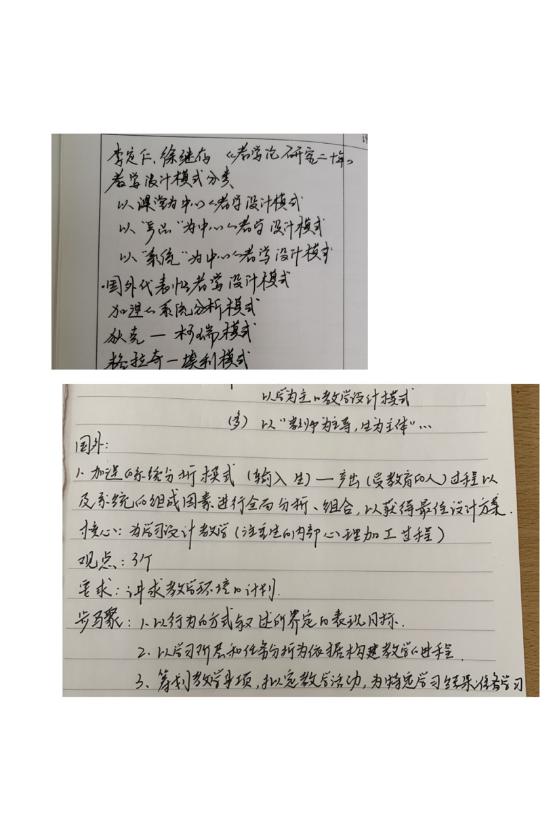 李定仁、徐继存 《教学论研究二十年》
教学设计模式分类
以课堂为中心的教学设计模式
以“产品”为中心的教学设计模式
以“系统”为中心的教学设计模式
·国外代表性教学设计模式
加涅的系统分析模式
狄克一柯瑞模式
格拉奇一埃利模式
以学为主的教学设计模式
以“教师为主导,生为主体”…
国外:
1.加涅的系统分析模式(输入生)一产出(受教育的人)过程以
及系统的组成因素进行全面分析、组合,以获得最佳设计方案.
核心:为学习设计教学(注重生的内部心理加工过程)
观点:3个
要求:讲求教学环境的计划.
步骤:1.以行为的方式叙述所界定的表现目标.
2.以学习阶层和任务分析为依据构建教学的过程.
3、筹划教学事项,拟定教学活动,为特定学习结果准备学习